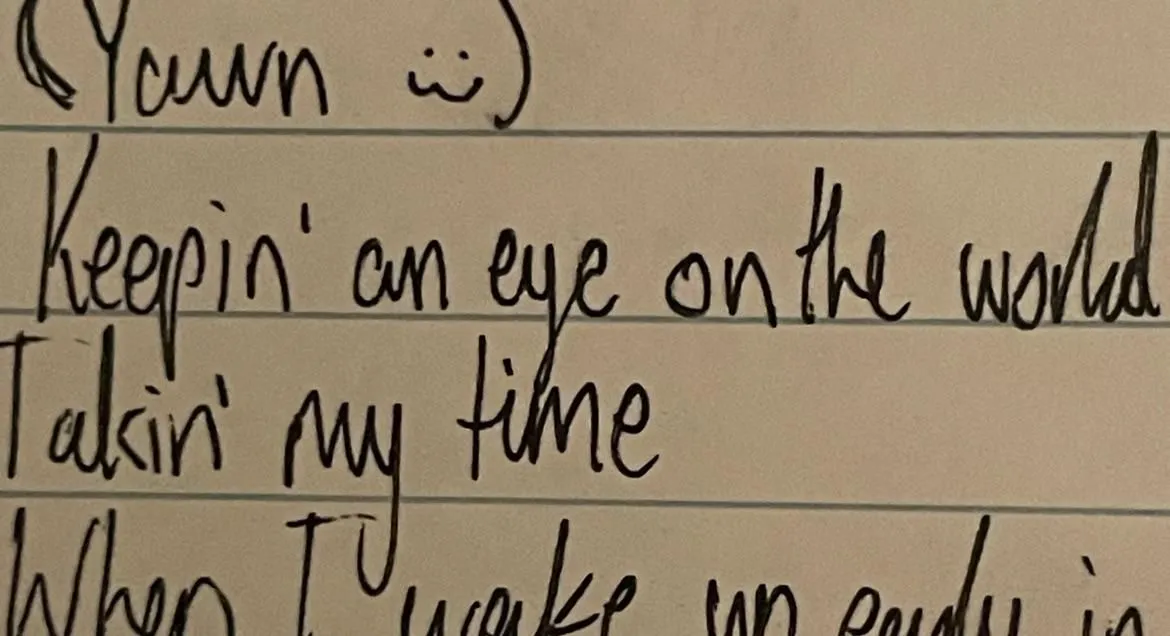 (Yawn :))
Keepin' an eye on the world
Takin' my time
When I wake up early in